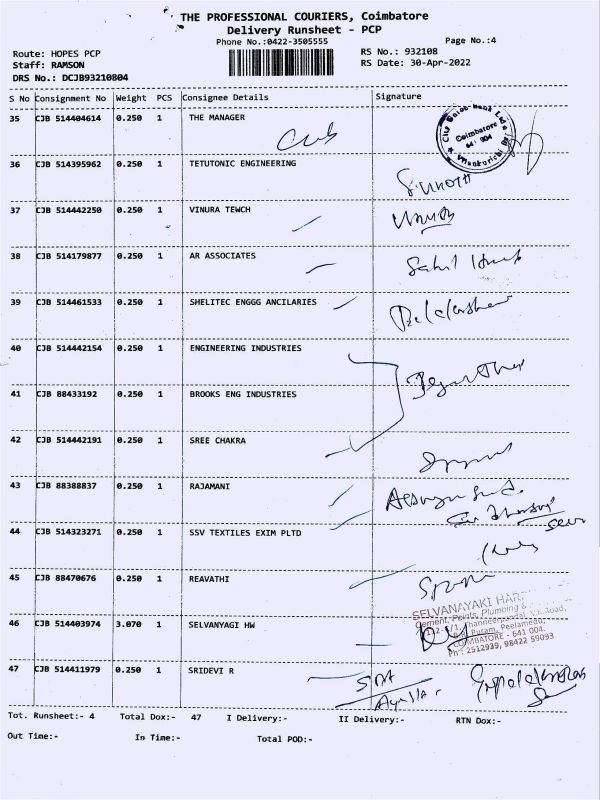 THE PROFESSIONAL COURIERS, Coimbatore
Delivery Runsheet - PCP
Phone No.:0422-3505555
Page No.:4
Route: HOPES PCP
RS No.: 932108
Staff: RAMSON
RS Date: 30-Apr-2022
DRS No.: DCJB93210804
S No Consignment No Weight PCS Consignee Details Signature
35 CJB 514404614 0.250 1 THE MANAGER
Cub
City Union Bank Ltd
Coimbatore
641 004
36 CJB 514395962 0.250 1 TETUTONIC ENGINEERING
37 CJB 514442250 0.250 1 VINURA TEWCH
38 CJB 514179877 0.250 1 AR ASSOCIATES
39 CJB 514461533 0.250 1 SHELITEC ENGGG ANCILARIES
40 CJB 514442154 0.250 1 ENGINEERING INDUSTRIES
41 CJB 88433192 0.250 1 BROOKS ENG INDUSTRIES
42 CJB 514442191 0.250 1 SREE CHAKRA
43 CJB 88388837 0.250 1 RAJAMANI
44 CJB 514323271 0.250 1 SSV TEXTILES EXIM PLTD
45 CJB 88470676 0.250 1 REAVATHI
46 CJB 514403974 3.070 1 SELVANYAGI HW
SELVANAYAKI
Cement, Paints, Plumbing &
Puram, Peelamedu,
COIMBATORE - 641 004.
Ph : 2512939, 98422 59093
47 CJB 514411979 0.250 1 SRIDEVI R
Tot. Runsheet:- 4 Total Dox:- 47 I Delivery:- II Delivery:- RTN Dox:-
Out Time:- In Time:- Total POD:-